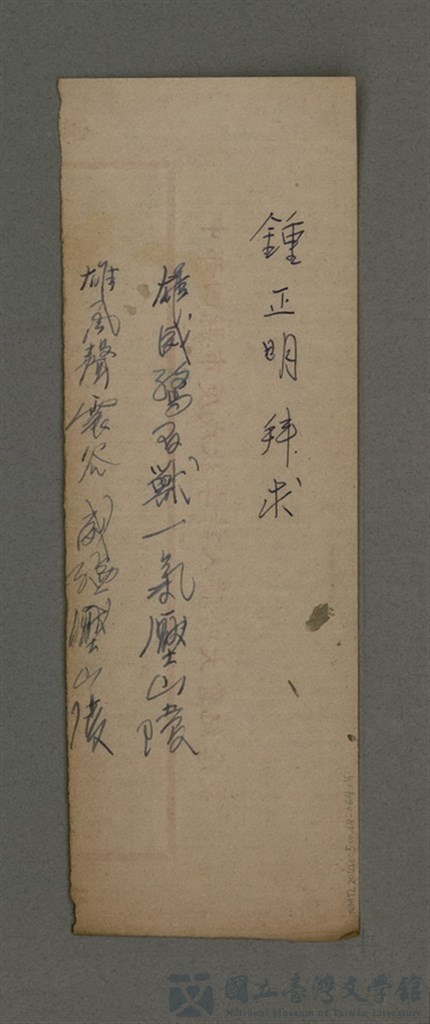 鍾正明 拜求
雄威驚百獸一氣壓山陵
雄風聲震谷 威強壓山陵
國立臺灣文學館
National Museum of Taiwan Literature